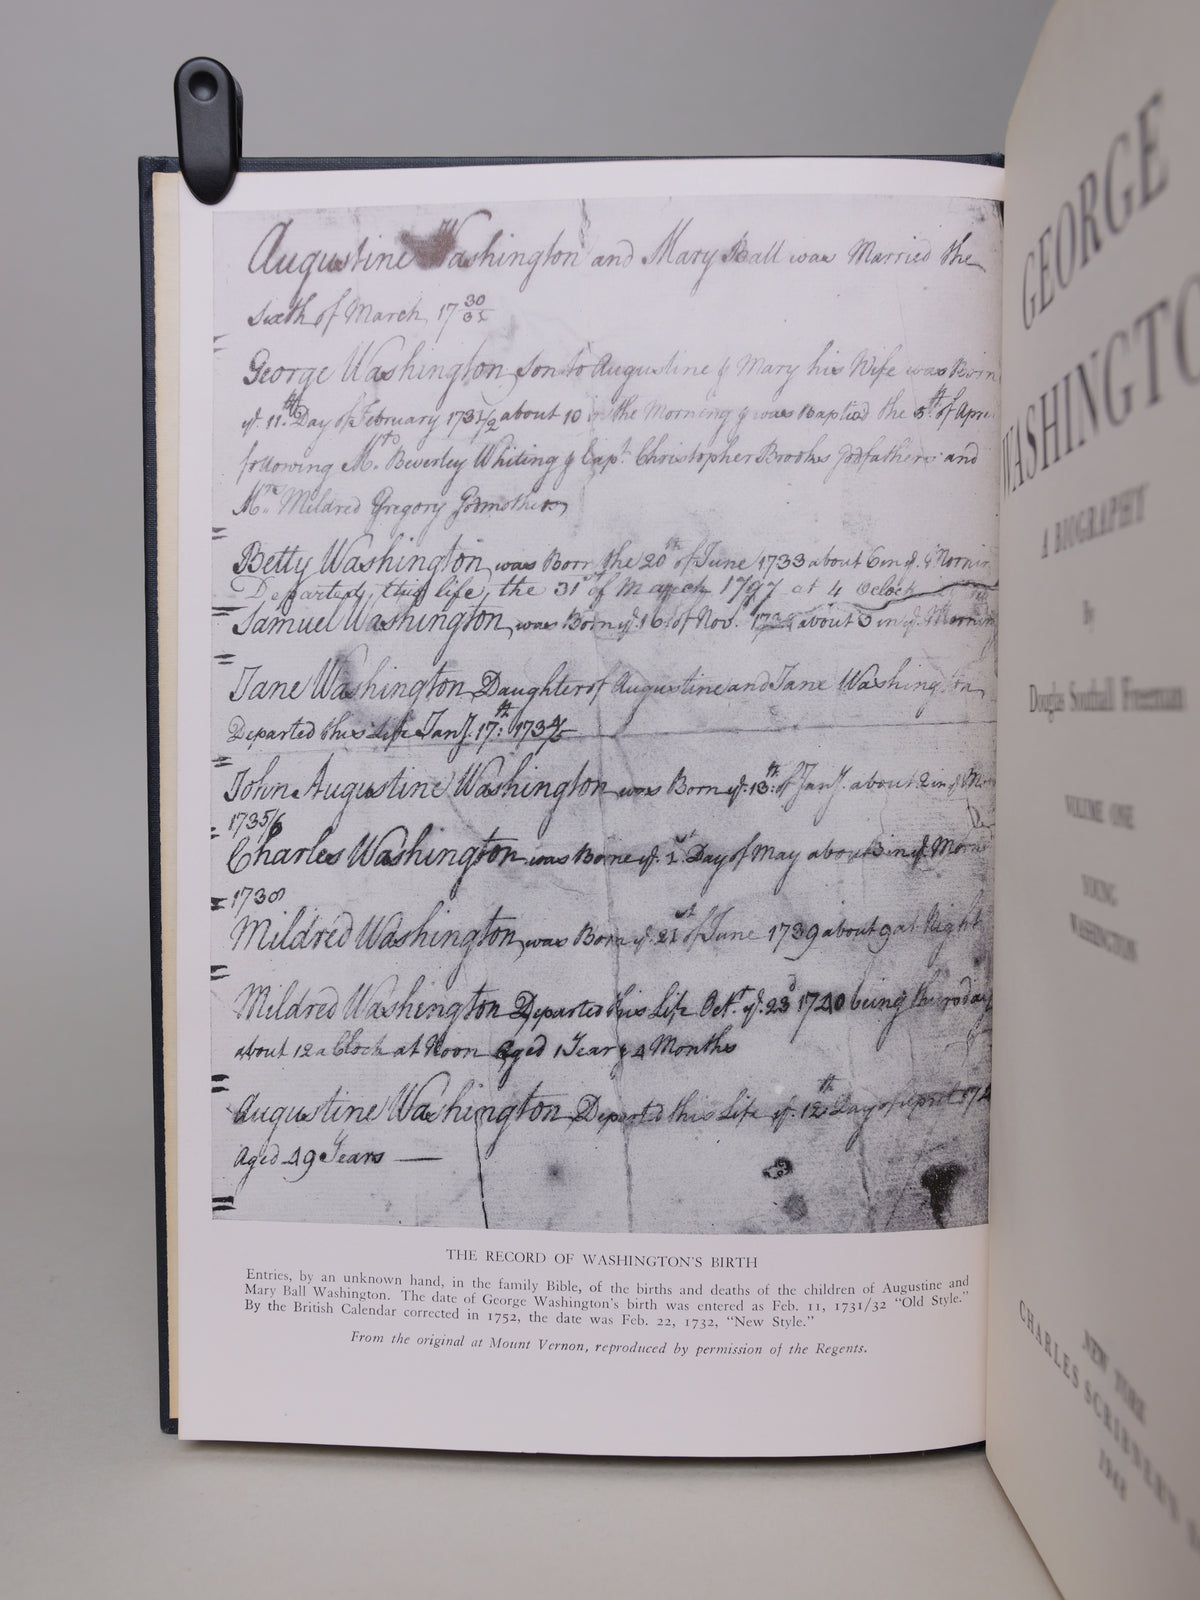 Augustine Washington and Mary Ball was Married the
Sixth of March 17 30/31
George Washington Son to Augustine & Mary his Wife was Born
ye. 11th Day of February 1731/2 about 10 in the Morning & was Baptised the 5th of April
following Mr. Beverley Whiting & Capt. Christopher Brooks Godfathers and
Mrs. Mildred Gregory Godmother
Betty Washington was Born the 20th of June 1733 about 6 in ye. Mornin
Departed this life, the 31st of March 1797 at 4 Oclock
Samuel Washington was Born ye. 16 of Nov. about 3 in ye. Mornin
Jane Washington Daughter of Augustine and Jane Washington
Departed this Life Jany. 17th. 1734/5
John Augustine Washington was Born ye. 13th. of Jany. about 2 in ye. Mor
1735/6
Charles Washington was Borne ye. 1st Day of May about 3 in ye. Morn
1738
Mildred Washington was Born ye. 21st of June 1739 about 9 at Night
Mildred Washington Departed this Life Octr. ye. 23d 1740 being thursday
about 12 a Clock at Noon Aged 1 Year & 4 Months
Augustine Washington Departed this Life ye. 12th Day of April 174
Aged 49 Years
THE RECORD OF WASHINGTON'S BIRTH
Entries, by an unknown hand, in the family Bible, of the births and deaths of the children of Augustine and
Mary Ball Washington. The date of George Washington's birth was entered as Feb. 11, 1731/32 "Old Style."
By the British Calendar corrected in 1752, the date was Feb. 22, 1732, "New Style."
From the original at Mount Vernon, reproduced by permission of the Regents.
GEORGE
WASHINGTO
A BIOGRAPHY
By
Douglas Southall Freeman
VOLUME ONE
YOUNG
WASHINGTON
NEW YORK
CHARLES SCRIBNER'S
1948